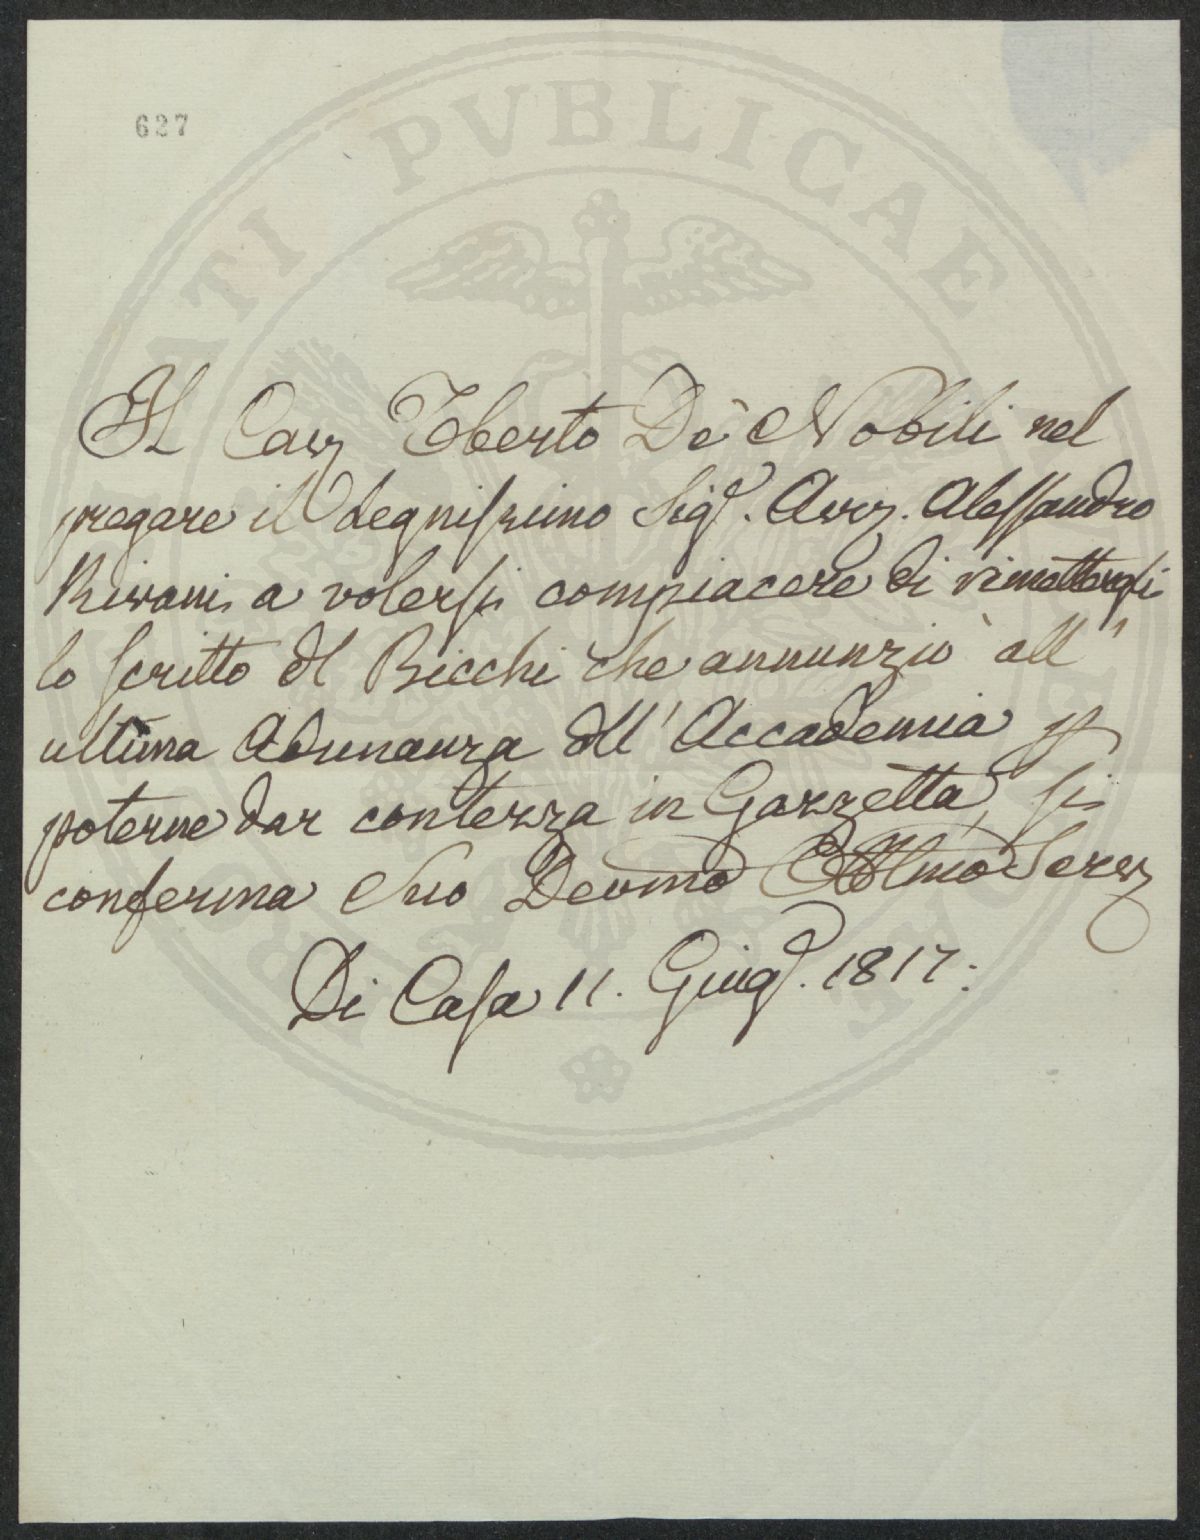 627
Il Cav Tberto De Nobili nel
pregare il degnissimo Sig.r Avv. Alessandro
Rivani a volersi compiacere di rimettergli
lo scritto del Bicchi che annunziò all'
ultima Adunanza dell'Accademia p
poterne dar contezza in Gazzetta, si
conferma Suo Devmo Obblmo Serv
Di Casa 11. Giug.o 1817.